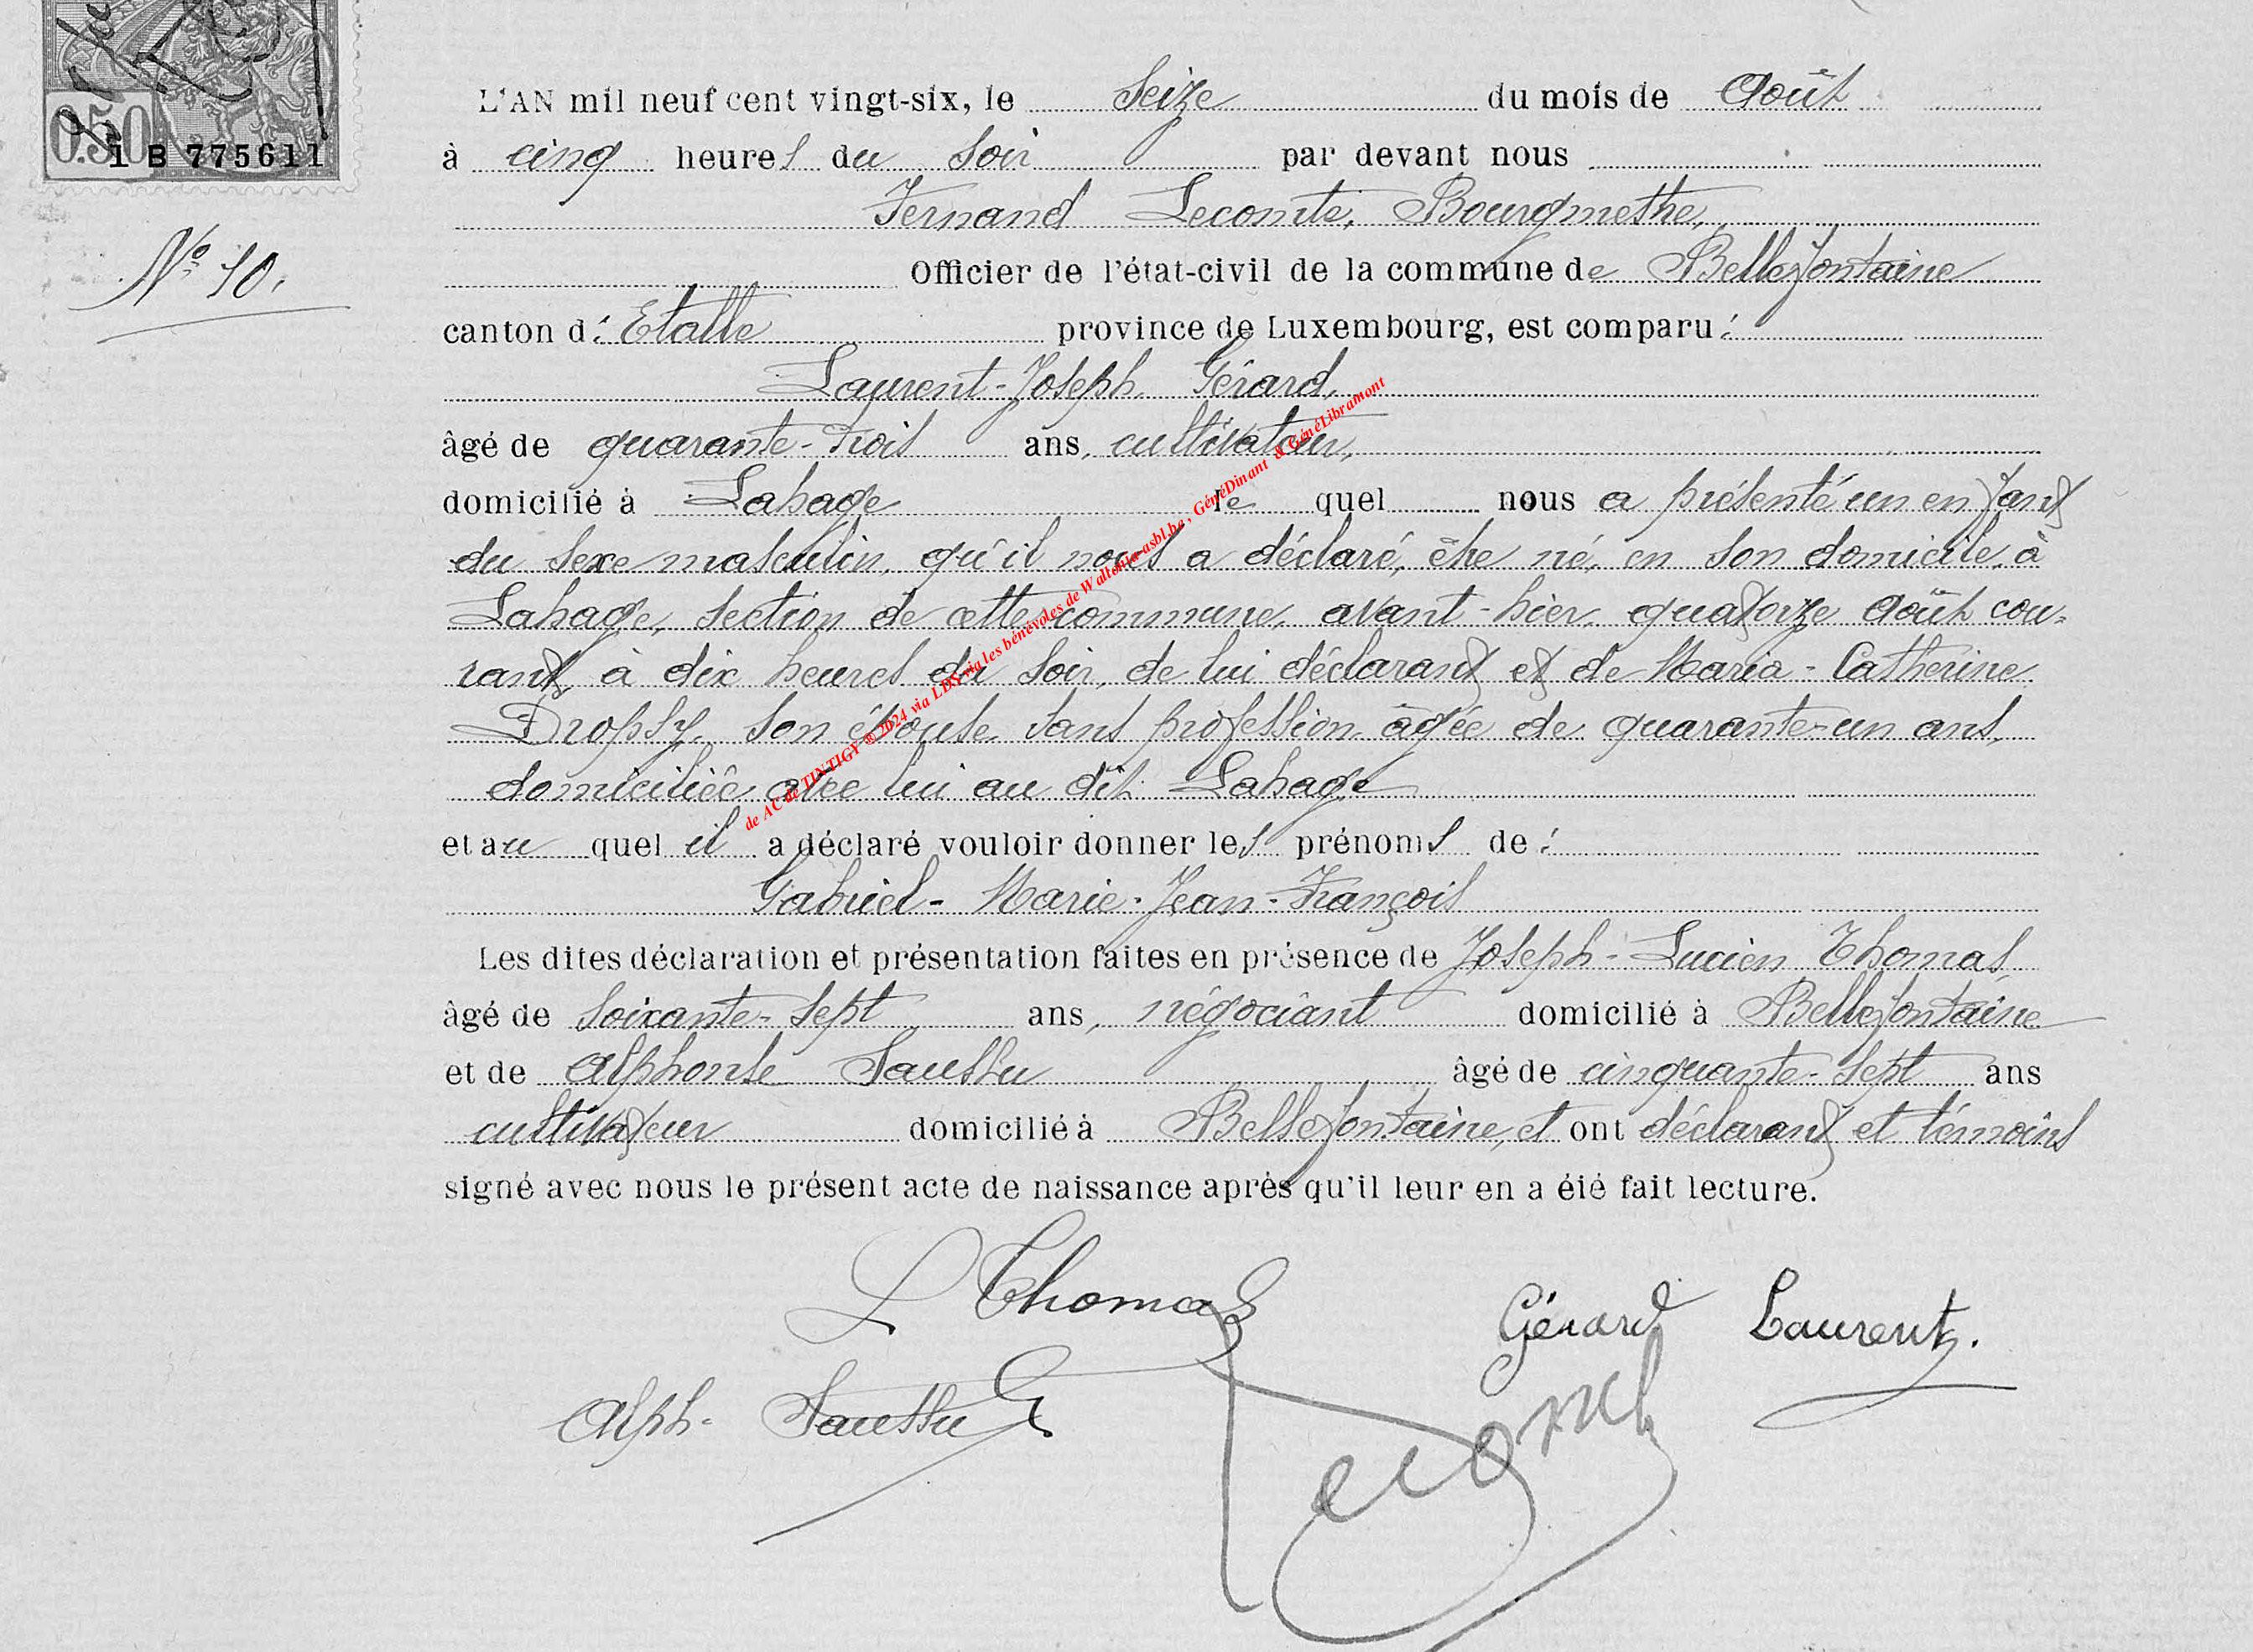 0.50
1 B 775611
N° 10.
L'AN mil neuf cent vingt-six, le seize du mois de Août
à cinq heures du soir par devant nous
Fernand Lecomte, Bourgmestre,
Officier de l'état-civil de la commune de Bellefontaine
canton d'Etalle province de Luxembourg, est comparu :
Laurent-Joseph Gérard,
âgé de quarante-trois ans, cultivateur,
domicilié à Lahage le quel nous a présenté un enfant
du sexe masculin, qu'il nous a déclaré, être né, en son domicile, à
Lahage, section de cette commune, avant-hier, quatorze Août cou-
rant, à dix heures du soir, de lui déclarant et de Maria-Catherine
Dropsy, son épouse, sans profession âgée de quarante-un ans,
domiciliée avec lui au dit Lahage
et au quel il a déclaré vouloir donner les prénoms de :
Gabriel-Marie-Jean-François
Les dites déclaration et présentation faites en présence de Joseph-Lucien Thomas,
âgé de soixante-sept ans, négociant domicilié à Bellefontaine
et de Alphonse Saussu âgé de cinquante-sept ans
cultivateur domicilié à Bellefontaine, et ont déclarant et témoins
signé avec nous le présent acte de naissance après qu'il leur en a été fait lecture.
L Thomas
Gérard Laurent.
Alph. Saussu
Lecomte
de AC de TINTIGY @ 2024 via LDS via les bénévoles de Wallonia-asbl.be, GénéDinant & GénéLibramont